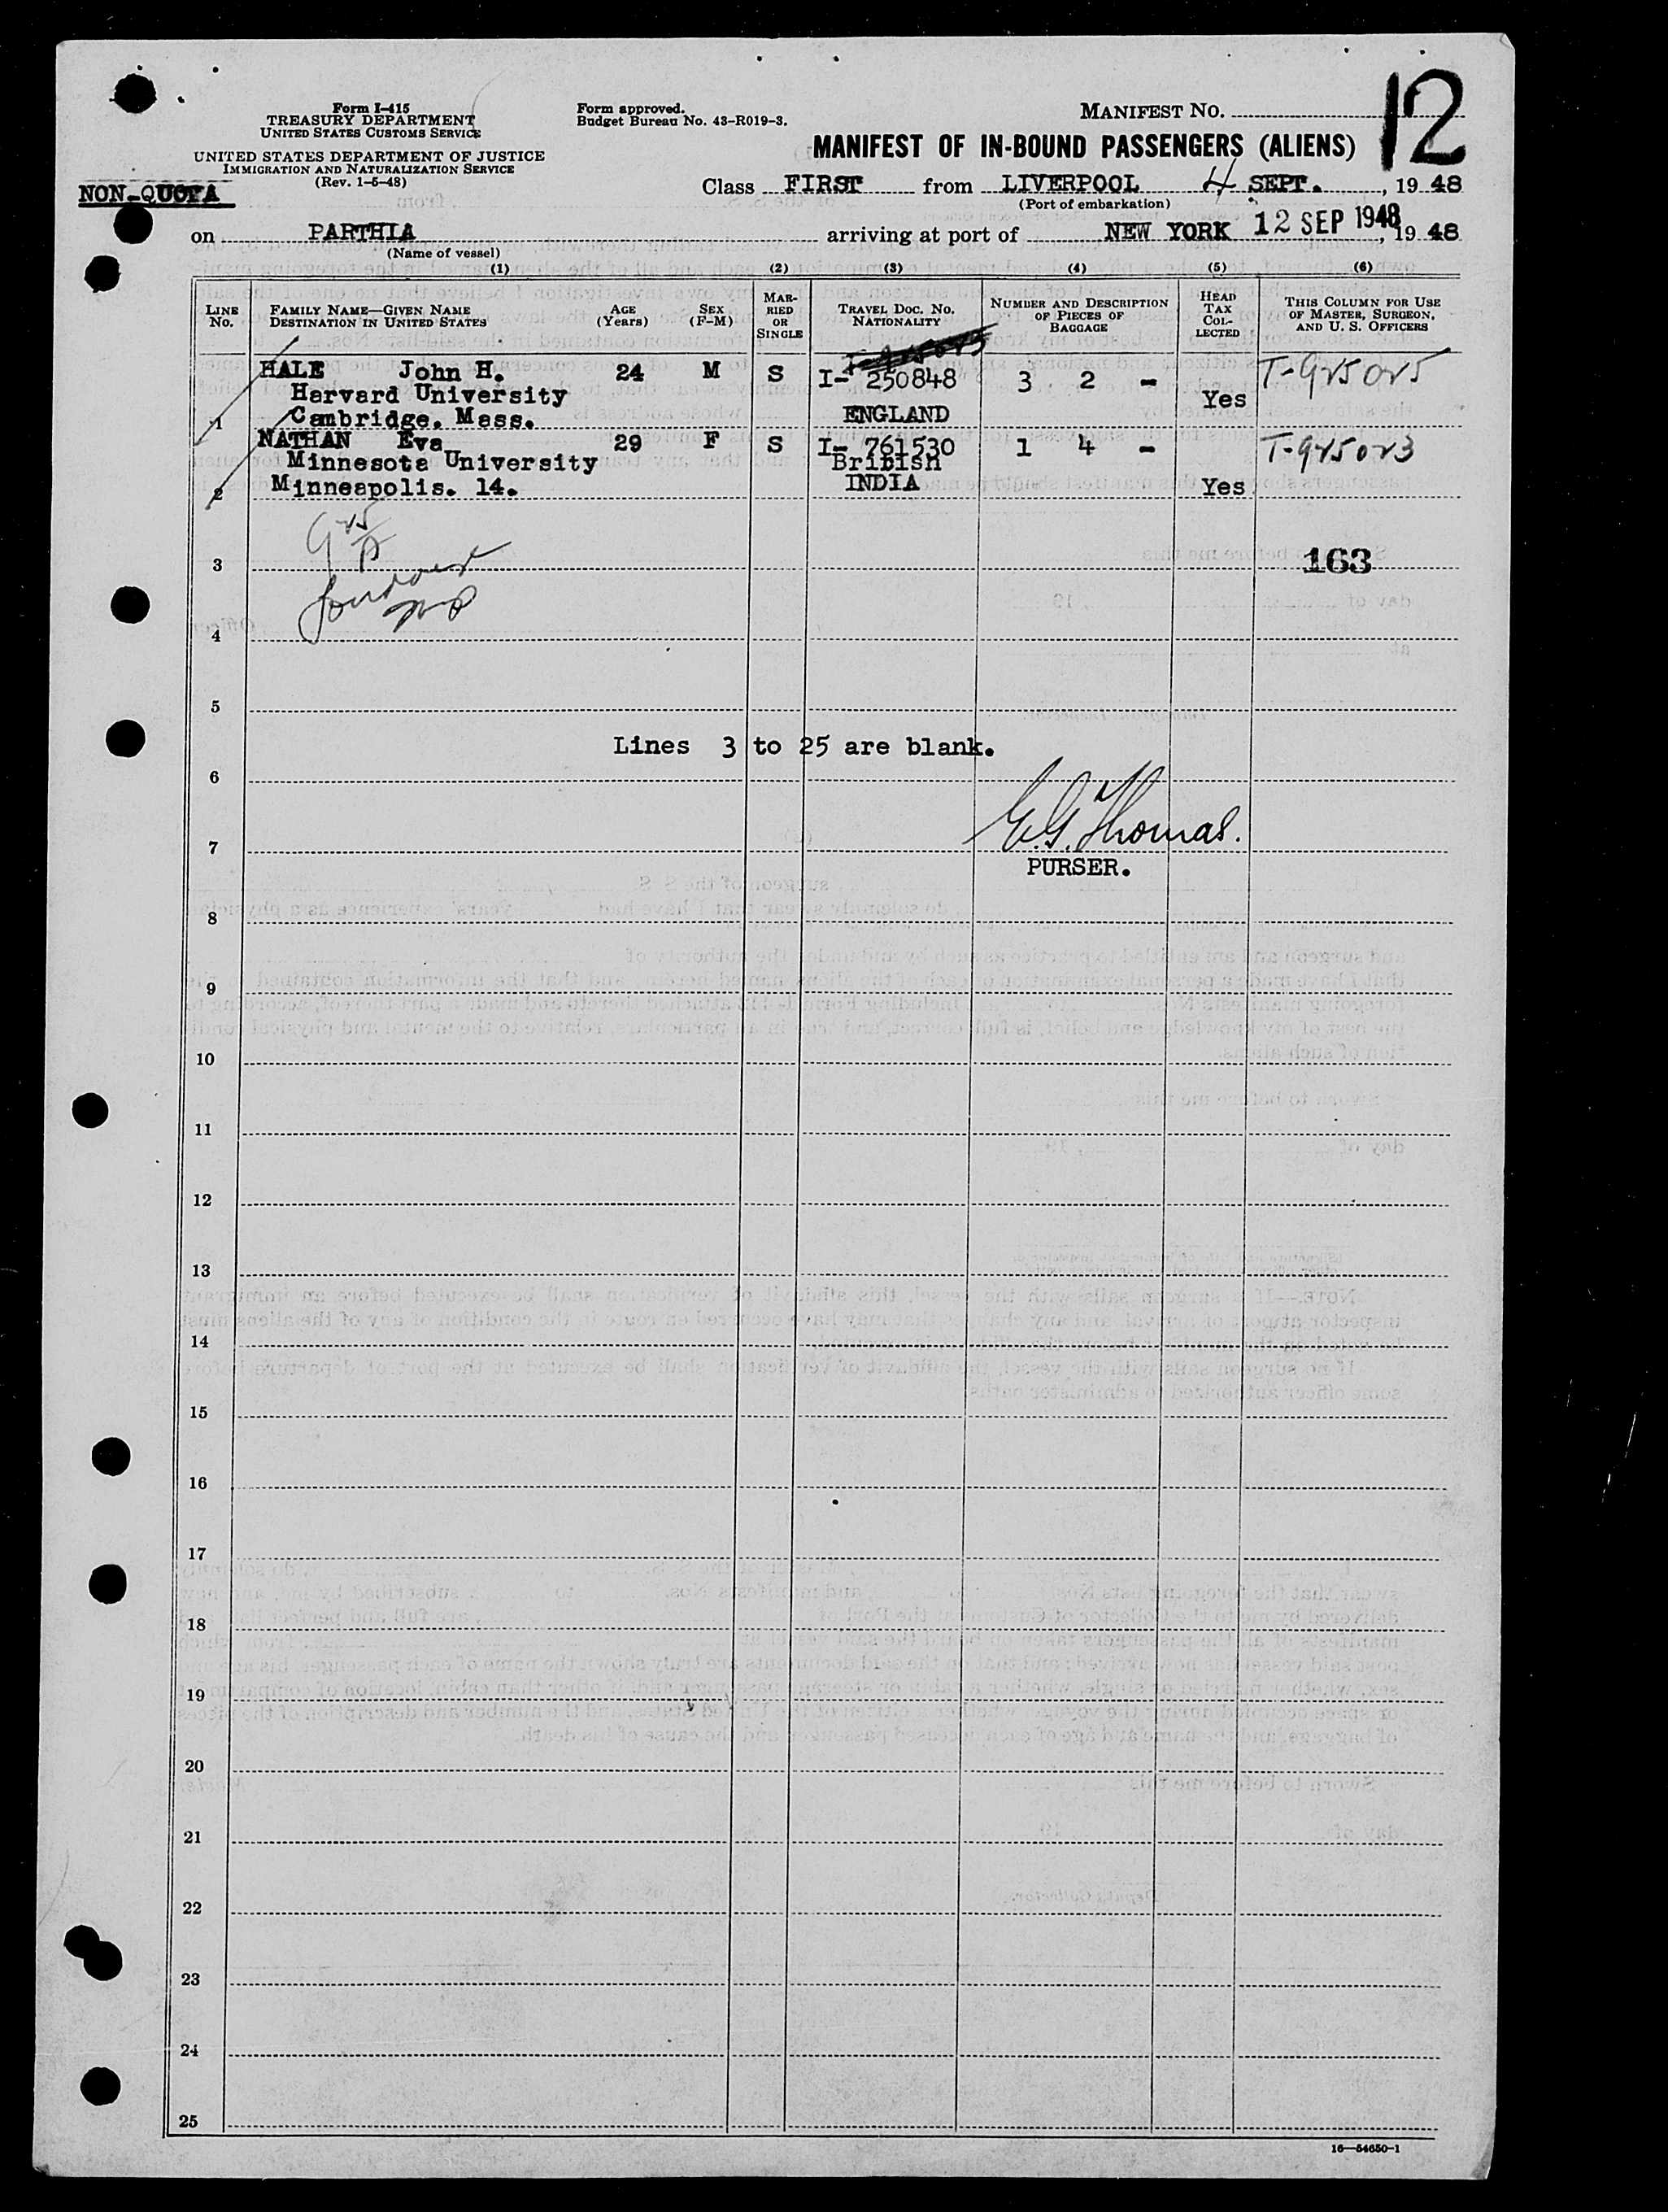 Form I-415
TREASURY DEPARTMENT
UNITED STATES CUSTOMS SERVICE
UNITED STATES DEPARTMENT OF JUSTICE
IMMIGRATION AND NATURALIZATION SERVICE
(Rev. 1-5-48)
Form approved.
Budget Bureau No. 43-R019-3.
MANIFEST NO.
12
MANIFEST OF IN-BOUND PASSENGERS (ALIENS)
NON-QUOTA
Class FIRST from LIVERPOOL 4 SEPT. , 19 48
(Port of embarkation)
on PARTHIA arriving at port of NEW YORK 12 SEP 1948 , 19 48
(Name of vessel)
(1) (2) (3) (4) (5) (6)
LINE No. FAMILY NAME—GIVEN NAME DESTINATION IN UNITED STATES AGE (Years) SEX (F-M) MARRIED OR SINGLE TRAVEL DOC. NO. NATIONALITY NUMBER AND DESCRIPTION OF PIECES OF BAGGAGE HEAD TAX COLLECTED THIS COLUMN FOR USE OF MASTER, SURGEON, AND U. S. OFFICERS
HALE John H. 24 M S I- 250848 3 2 - T-925025
Harvard University
1 Cambridge. Mass. ENGLAND Yes
NATHAN Eva 29 F S I- 761530 1 4 - T-925023
Minnesota University British
2 Minneapolis. 14. INDIA Yes
925
3 163
4
5
Lines 3 to 25 are blank.
6
E.G. Thomas.
7
PURSER.
8
9
10
11
12
13
14
15
16
17
18
19
20
21
22
23
24
25
16—54650-1